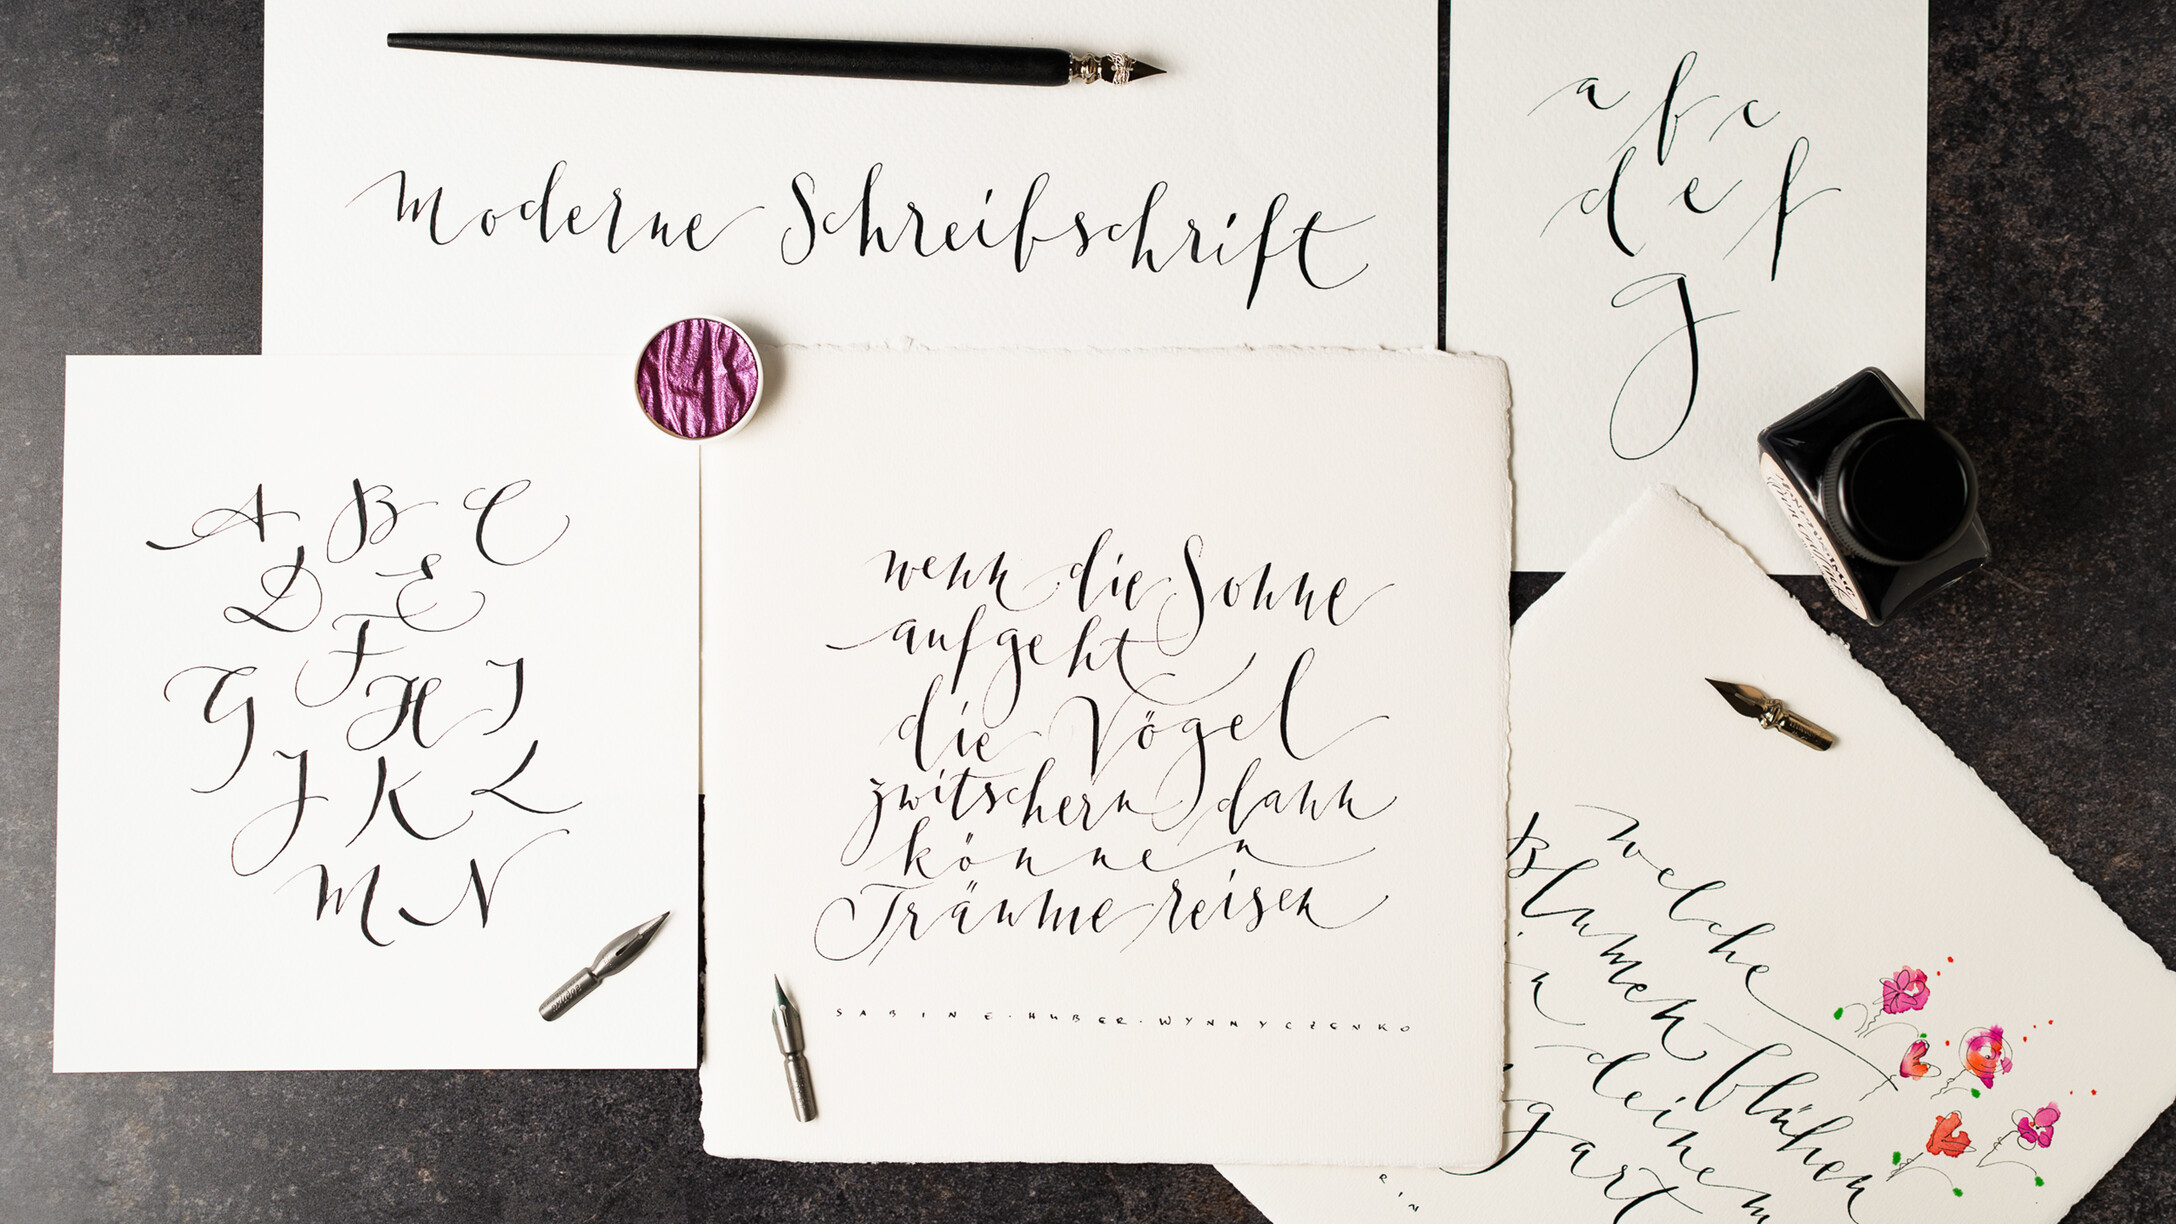 Moderne Schreibschrift
a b c
d e f
g
A B C
D E
F
G H I
J K L
M N
wenn die Sonne
aufgeht
die Vögel
zwitschern dann
können
Träume reisen
SABINE·HUBER·WYNNYCZENKO
welche
Blumen blühen
in deinem